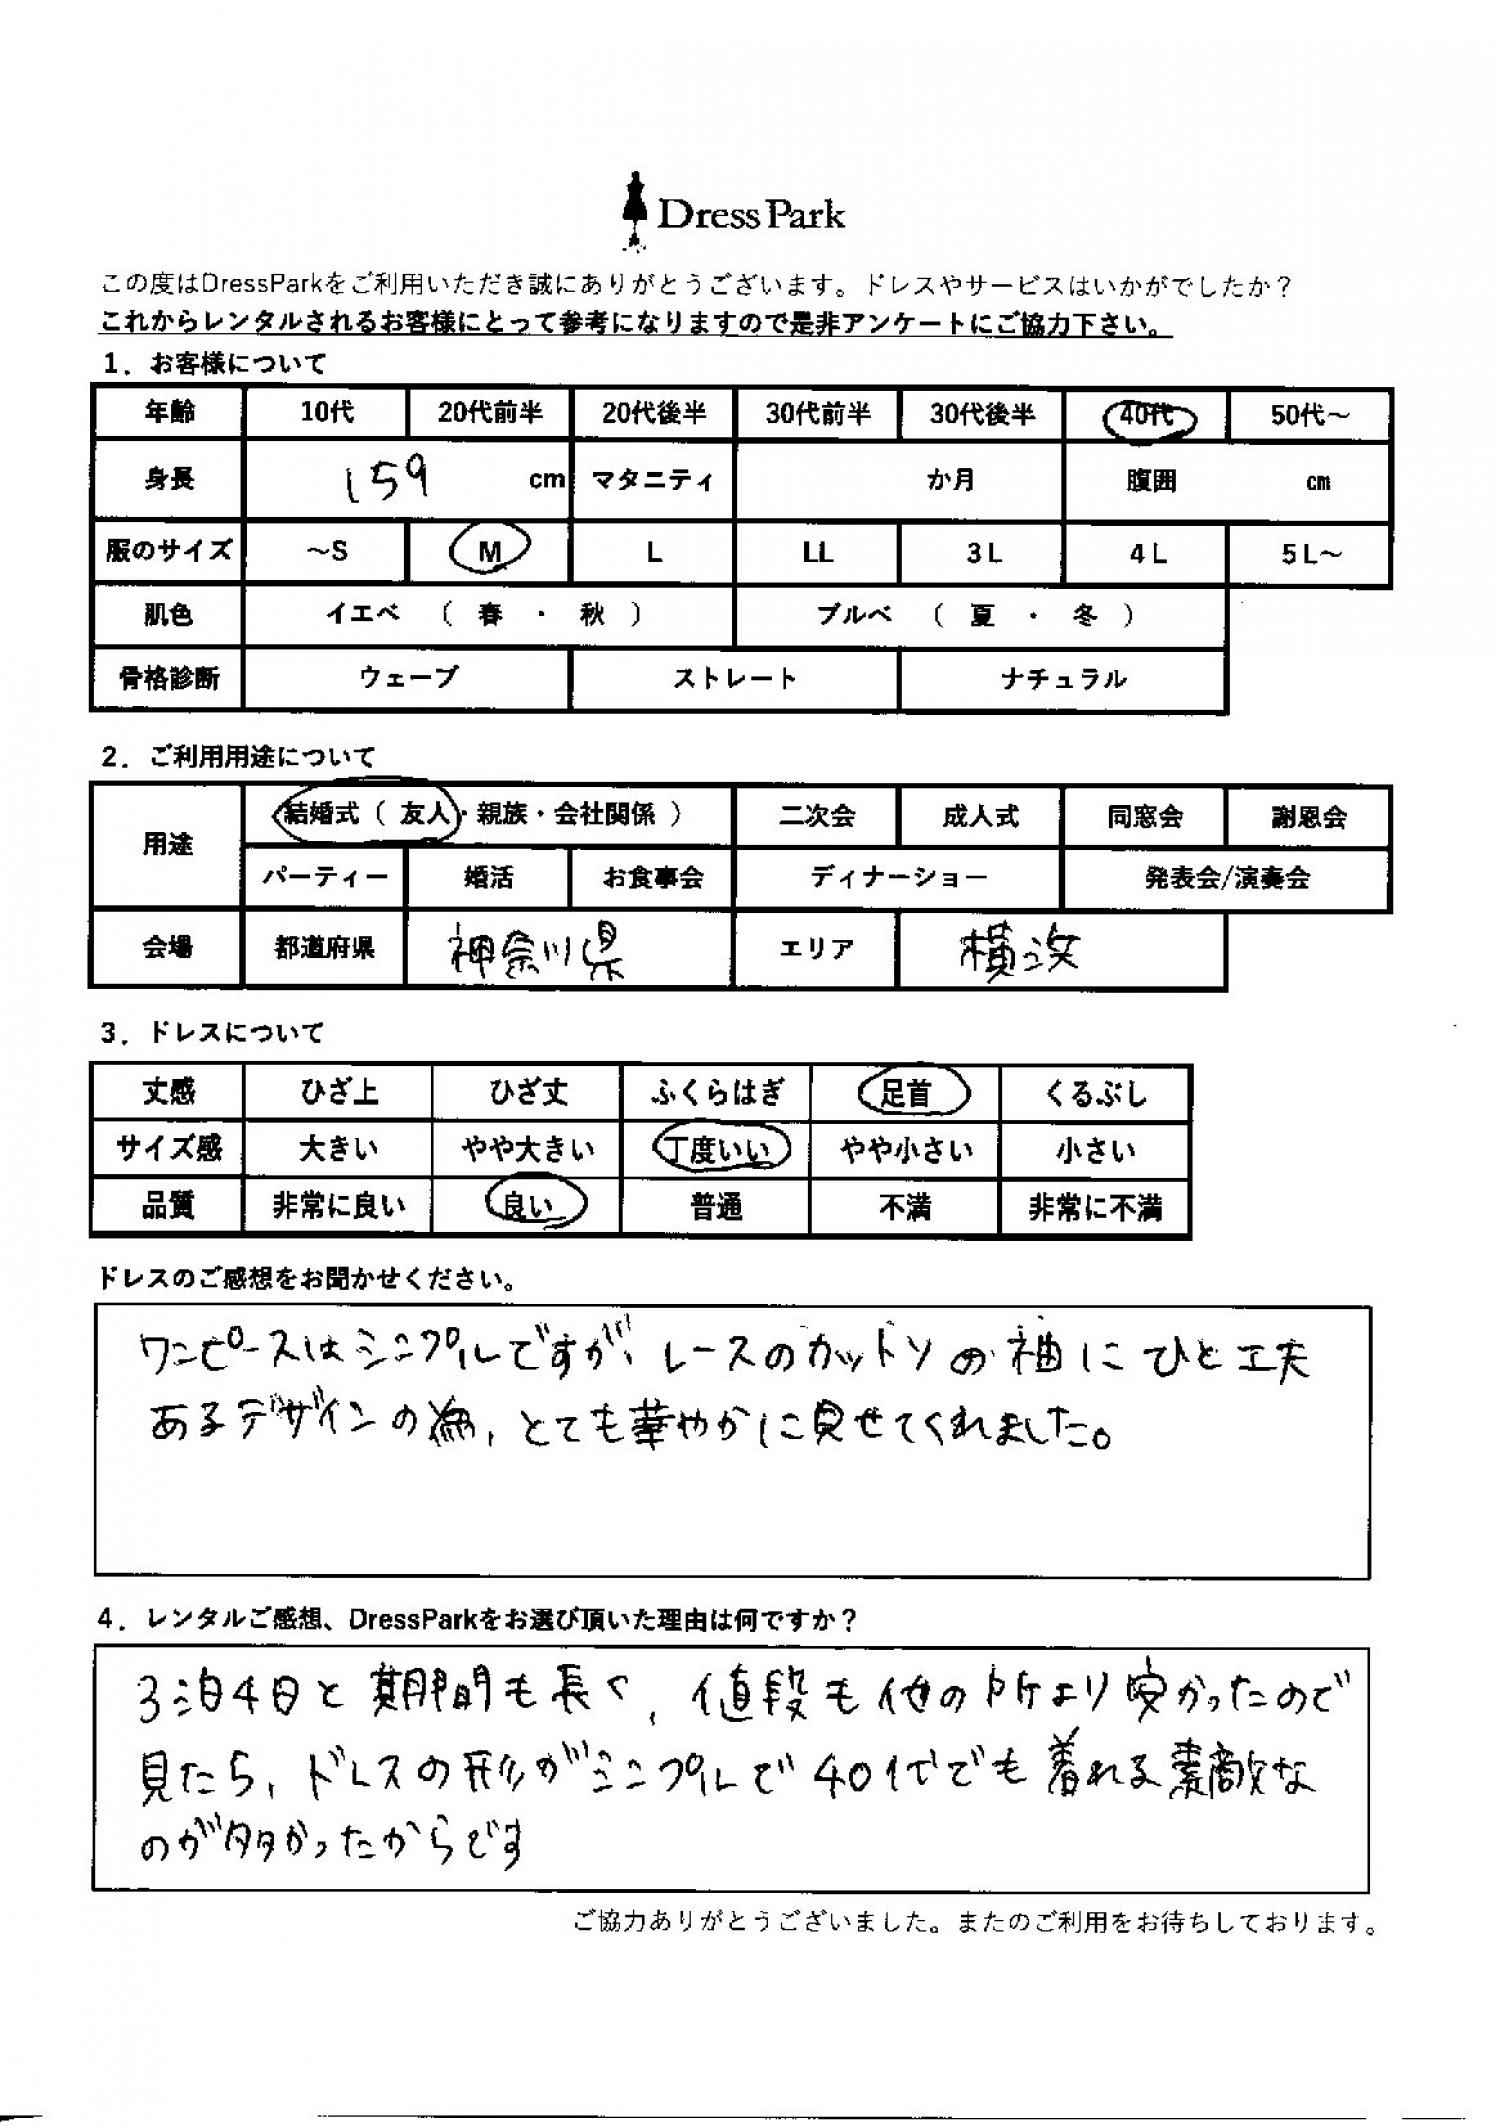 Dress Park
この度はDressParkをご利用いただき誠にありがとうございます。ドレスやサービスはいかがでしたか？
これからレンタルされるお客様にとって参考になりますので是非アンケートにご協力下さい。
1．お客様について
年齢 10代 20代前半 20代後半 30代前半 30代後半 40代 50代～
身長 159 cm マタニティ か月 腹囲 cm
服のサイズ ～S M L LL 3L 4L 5L～
肌色 イエベ （ 春 ・ 秋 ） ブルベ （ 夏 ・ 冬 ）
骨格診断 ウェーブ ストレート ナチュラル
2．ご利用用途について
用途 結婚式（ 友人・親族・会社関係 ） 二次会 成人式 同窓会 謝恩会
パーティー 婚活 お食事会 ディナーショー 発表会/演奏会
会場 都道府県 神奈川県 エリア 横浜
3．ドレスについて
丈感 ひざ上 ひざ丈 ふくらはぎ 足首 くるぶし
サイズ感 大きい やや大きい 丁度いい やや小さい 小さい
品質 非常に良い 良い 普通 不満 非常に不満
ドレスのご感想をお聞かせください。
ワンピースはシンプルですが、レースのカットソの袖にひと工夫
あるデザインの為、とても華やかに見せてくれました。
4．レンタルご感想、DressParkをお選び頂いた理由は何ですか？
3泊4日と期間も長く、値段も他の所より安かったので
見たら、ドレスの形がシンプルで40代でも着れる素敵な
のが多かったからです
ご協力ありがとうございました。またのご利用をお待ちしております。